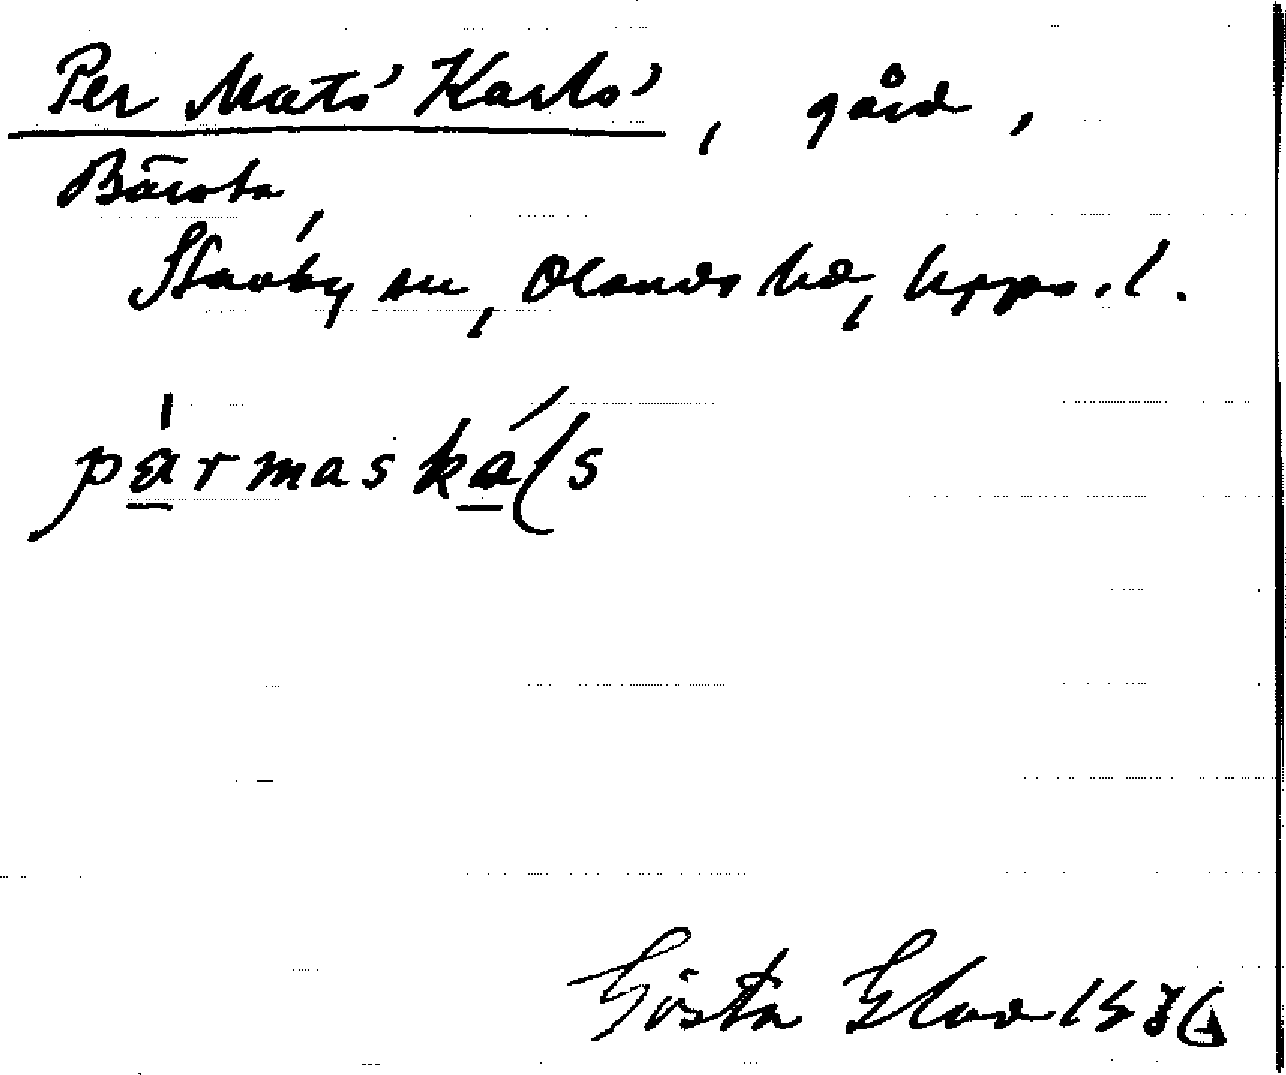 Per Mats' Karls', gård,
Bärsta,
Stavby sn, Olands hd, Upps. l.
pàrmaskáls
Gösta Elow 1936